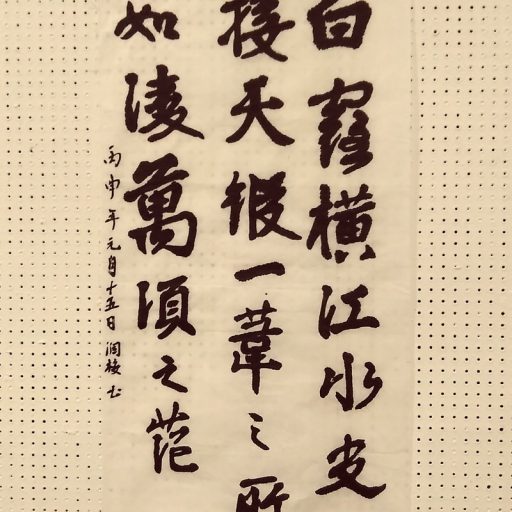 白露橫江水光
接天縱一葦之所
如淩萬頃之茫
丙申年元月十五日